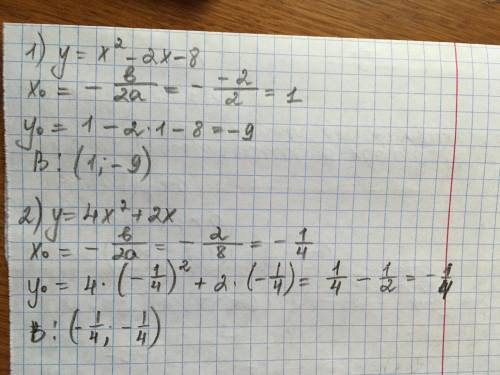 1) y = x² - 2x - 8
x₀ = - b/2a = - -2/2 = 1
y₀ = 1 - 2·1 - 8 = -9
B: (1; -9)
2) y = 4x² + 2x
x₀ = - b/2a = - 2/8 = - 1/4
y₀ = 4·(-1/4)² + 2·(-1/4) = 1/4 - 1/2 = -1/4
B: (-1/4; -1/4)